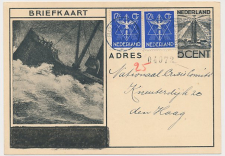 BRIEFKAART
NEDERLAND
NEDERLAND
NEDERLAND
5 CENT
ADRES
25
Nationaal Crisis Comité
Kneuterdijk 20
den Haag